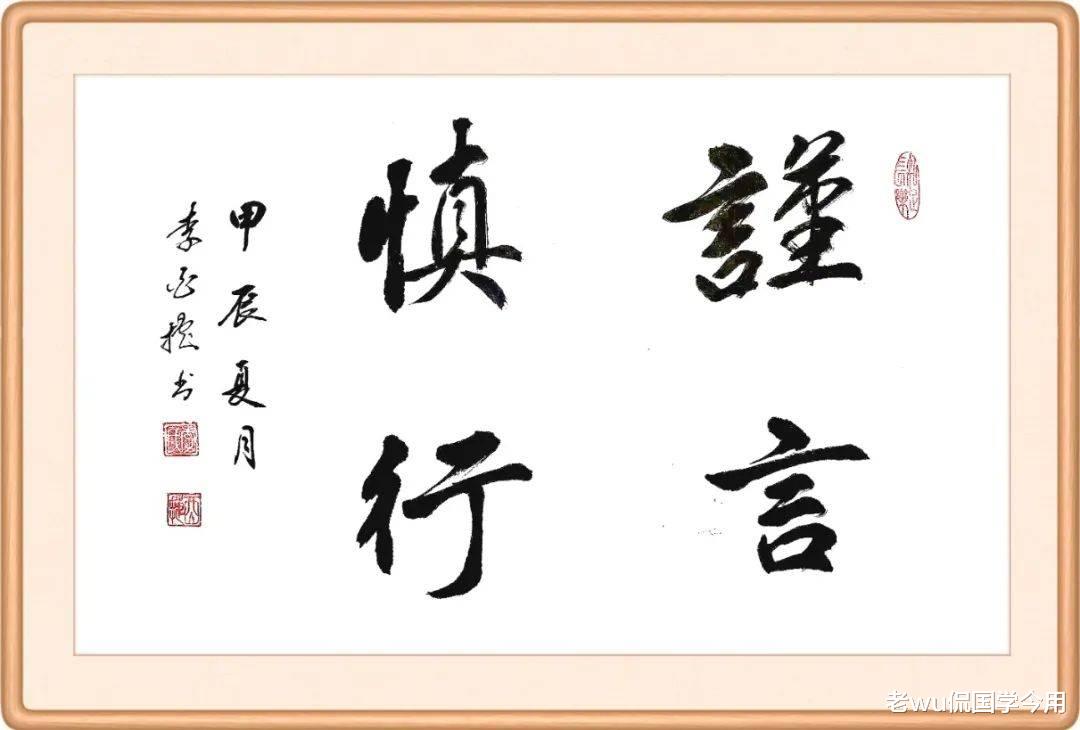 謹言
慎行
甲辰夏月
李
书
老wu侃国学今用